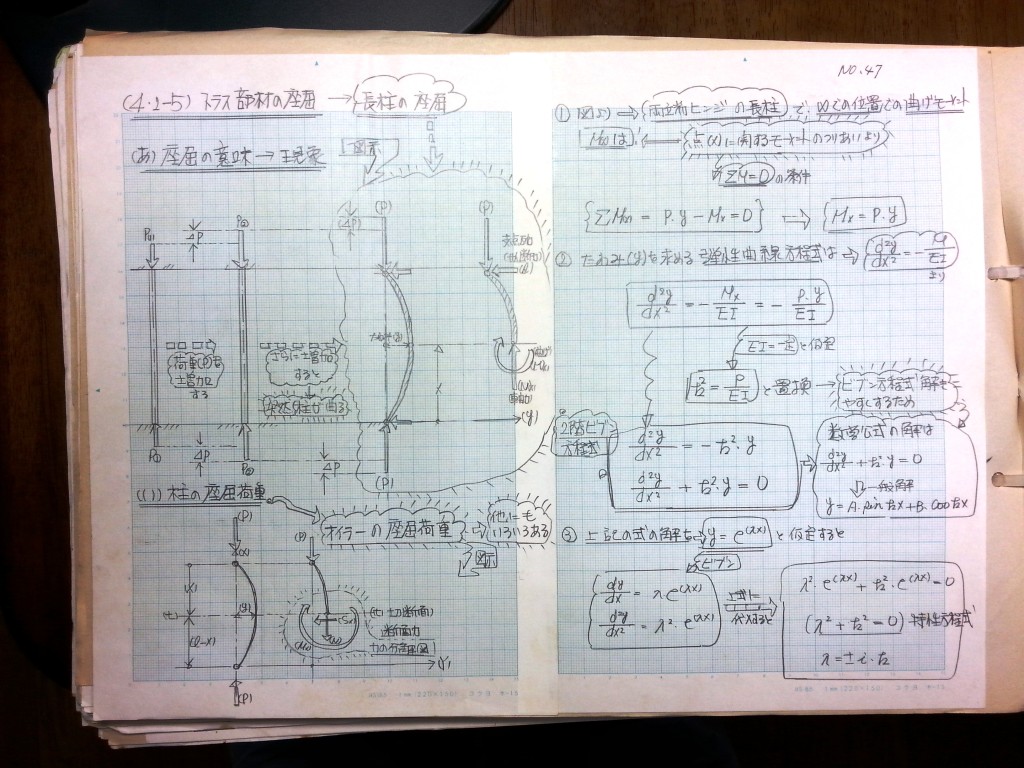 NO.47
(4・2-5) トラス部材の座屈 → 長柱の座屈
(あ) 座屈の意味→現象
図示
P(1)
ΔP
P(2)
(ΔP)
(P)
(P)
荷重(P)を
増加
する
さらに増加
すると
突然柱が曲る
たわみ(y)
x
(y)
P(1)
ΔP
P(2)
ΔP
(P)
(い) 柱の座屈荷重
オイラーの座屈荷重 → 他にも
いろいろある
図示
(P)
(x)
(y)
(t)
(l-x)
(P)
(P)
(t) 切断面
断面力
(Y)
① 図より ⇒ 両端ヒンジの長柱で, 図での位置での曲げモーメント
M(x)は 点(x)に関するモーメントのつりあいより
ΣM=0の条件
{ΣM(x) = P・y - Mx = 0} ⇒ {Mx = P・y}
② たわみ(y)を求める弾性曲線方程式は ⇒ d²y/dx² = - M/EI
より
d²y/dx² = - Mx/EI = - P・y/EI
EI=一定と仮定
k² = P/EI と置換 → ビブン方程式解を
やすくするため
2階ビブン
方程式
d²y/dx² = -k²・y
d²y/dx² + k²・y = 0
数学公式の解は
d²y/dx² + k²・y = 0
一般解
y = A・sin kx + B・cos kx
③ 上記の式の解を y = e^(λx) と仮定すると
ビブン
dy/dx = λ e^(λx)
d²y/dx² = λ²・e^(λx)
上式に
代入すると
λ²・e^(λx) + k²・e^(λx) = 0
(λ² + k² = 0) 特性方程式
λ = ±i・k